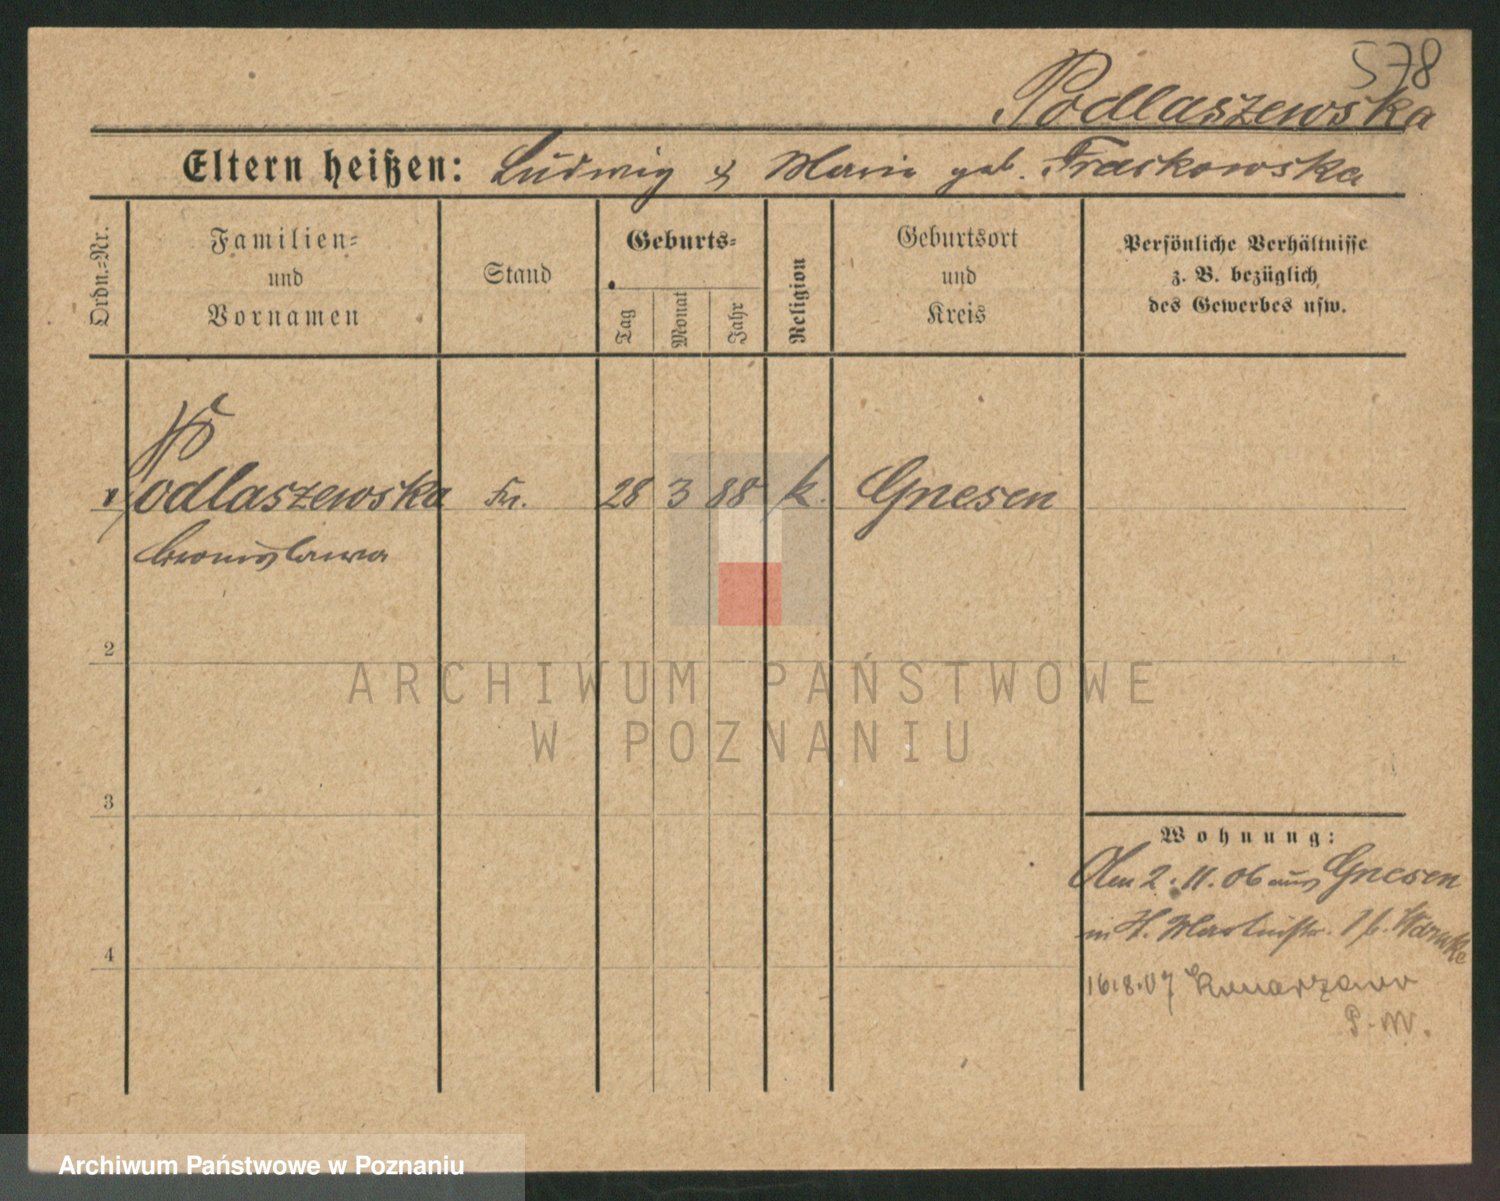 578
Podlaszewska
Eltern heißen: Ludwig & Marie geb. Frackowska
Ordn.-Nr.
Familien-
und
Vornamen
Stand
Geburts-
Tag
Monat
Jahr
Religion
Geburtsort
und
Kreis
Persönliche Verhältnisse
z. B. bezüglich
des Gewerbes usw.
1 Podlaszewska Frl. 28 3 88 k. Gnesen
Bronislawa
2
ARCHIWUM PAŃSTWOWE
W POZNANIU
3
Wohnung:
Am 2.11.06 aus Gnesen
in St. Martinstr.
4
16.8.07
P. W.
Archiwum Państwowe w Poznaniu